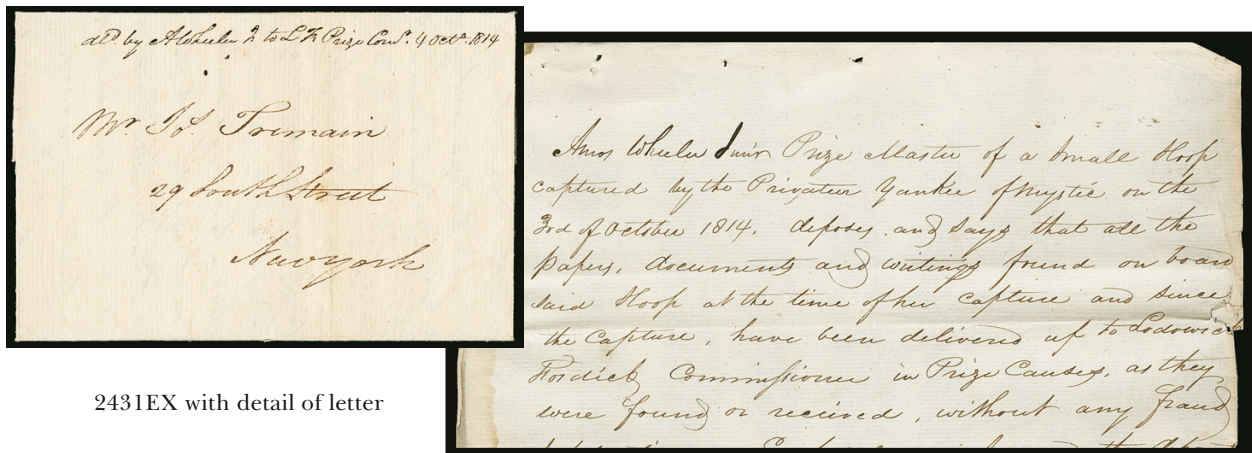 deld by A Wheeler 2 to L F Prize Comr. 4 Octr. 1814
Mr. I S. Tremain
29 South Street
New york
Amos Wheeler Junr Prize Master of a Small Sloop
captured by the Privateer Yankee of Mystic on the
3rd of October 1814. deposes and says that all the
papers, documents and writings found on board
said Sloop at the time of her capture and since
the Capture, have been delivered up to Lodowick
Fosdick Commissioner in Prize Causes, as they
were found or received, without any fraud
2431EX with detail of letter